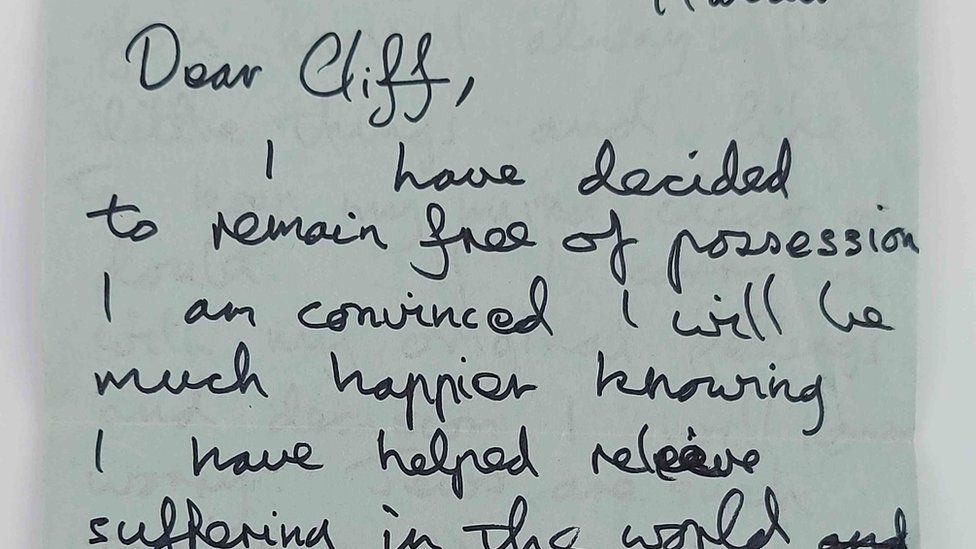 Dear Cliff,
I have decided
to remain free of possession
I am convinced I will be
much happier knowing
I have helped releive
suffering in the world and